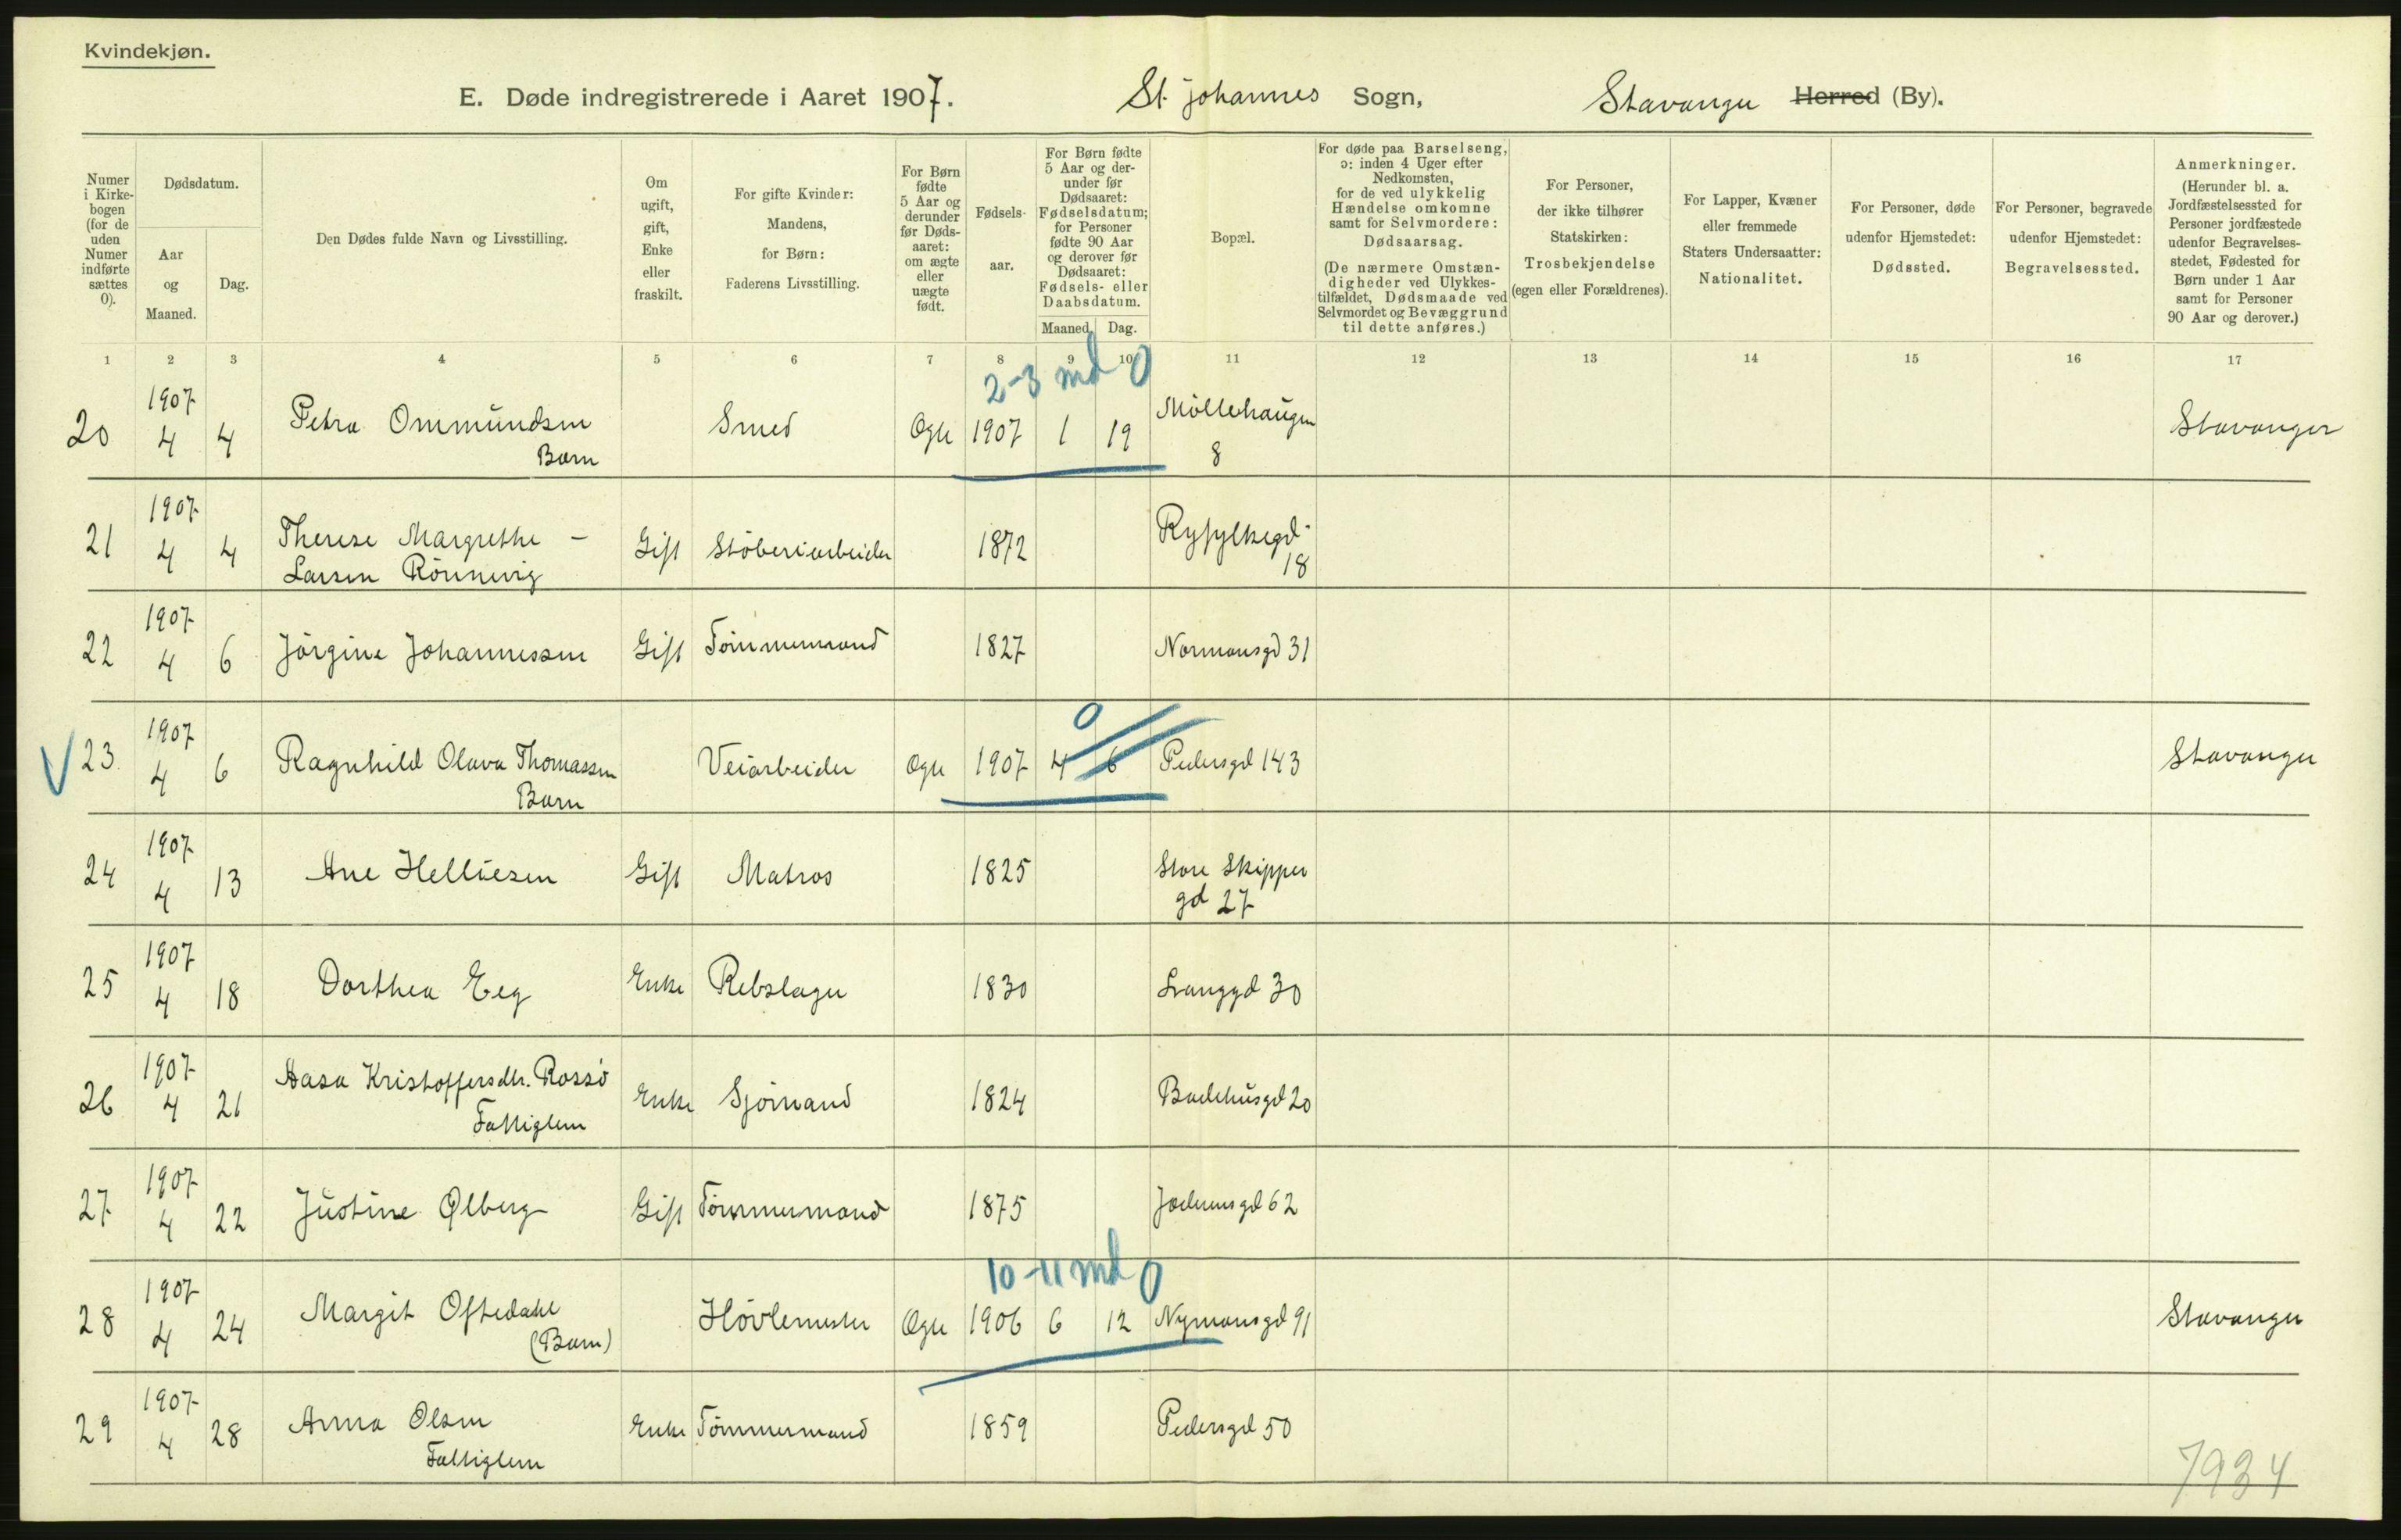 Kvindekjøn.
E. Døde indregistrerede i Aaret 1907. St. Johannes Sogn, Stavanger Herred (By).
Numer i Kirkebogen (for de uden Numer indførte sættes 0).
Dødsdatum.
Aar og Maaned.
Dag.
Den Dødes fulde Navn og Livsstilling.
Om ugift, gift, Enke eller fraskilt.
For gifte Kvinder: Mandens, for Børn: Faderens Livsstilling.
For Børn fødte 5 Aar og derunder før Dødsaaret: om ægte eller uægte født.
Fødselsaar.
For Børn fødte 5 Aar og derunder før Dødsaaret: Fødselsdatum; for Personer fødte 90 Aar og derover før Dødsaaret: Fødsels- eller Daabsdatum.
Maaned. Dag.
Bopæl.
For døde paa Barselseng, ɔ: inden 4 Uger efter Nedkomsten, for de ved ulykkelig Hændelse omkomne samt for Selvmordere: Dødsaarsag.
(De nærmere Omstændigheder ved Ulykkestilfældet, Dødsmaade ved Selvmordet og Bevæggrund til dette anføres.)
For Personer, der ikke tilhører Statskirken: Trosbekjendelse (egen eller Forældrenes).
For Lapper, Kvæner eller fremmede Staters Undersaatter: Nationalitet.
For Personer, døde udenfor Hjemstedet: Dødssted.
For Personer, begravede udenfor Hjemstedet: Begravelsessted.
Anmerkninger.
(Herunder bl. a. Jordfæstelsessted for Personer jordfæstede udenfor Begravelsesstedet, Fødested for Børn under 1 Aar samt for Personer 90 Aar og derover.)
1 2 3 4 5 6 7 8 9 10 11 12 13 14 15 16 17
2-3 md 0
20 1907 4 4 Petra Ommundsen Barn Smed Ogte 1907 1 19 Möllehaugen 8 Stavanger
21 1907 4 4 Therese Margrethe - Larsen Rönnevig Gift Stöberiarbeider 1872 Ryfylkegd 18
22 1907 4 6 Jörgine Johannessen Gift Tömmermand 1827 Normansgd 31
0
V 23 1907 4 6 Ragnhild Olava Thomassen Barn Veiarbeider Ogte 1907 4 6 Pedersgd 143 Stavanger
24 1907 4 13 Ane Helliesen Gift Matros 1825 Store Skipper gd 27
25 1907 4 18 Dorthea Eeg Enke Rebslager 1830 Langgd 30
26 1907 4 21 Aasa Kristoffersdtr. Rossö Fattiglem Enke Sjömand 1824 Badehusgd 20
27 1907 4 22 Justine Ølberg Gift Tömmermand 1875 Jæderensgd 62
10-11 md 0
28 1907 4 24 Margit Oftedahl (Barn) Hövlemester Ogte 1906 6 12 Nymansgd 91 Stavanger
29 1907 4 28 Anna Olsen Fattiglem Enke Tömmermand 1859 Pedersgd 50
7934